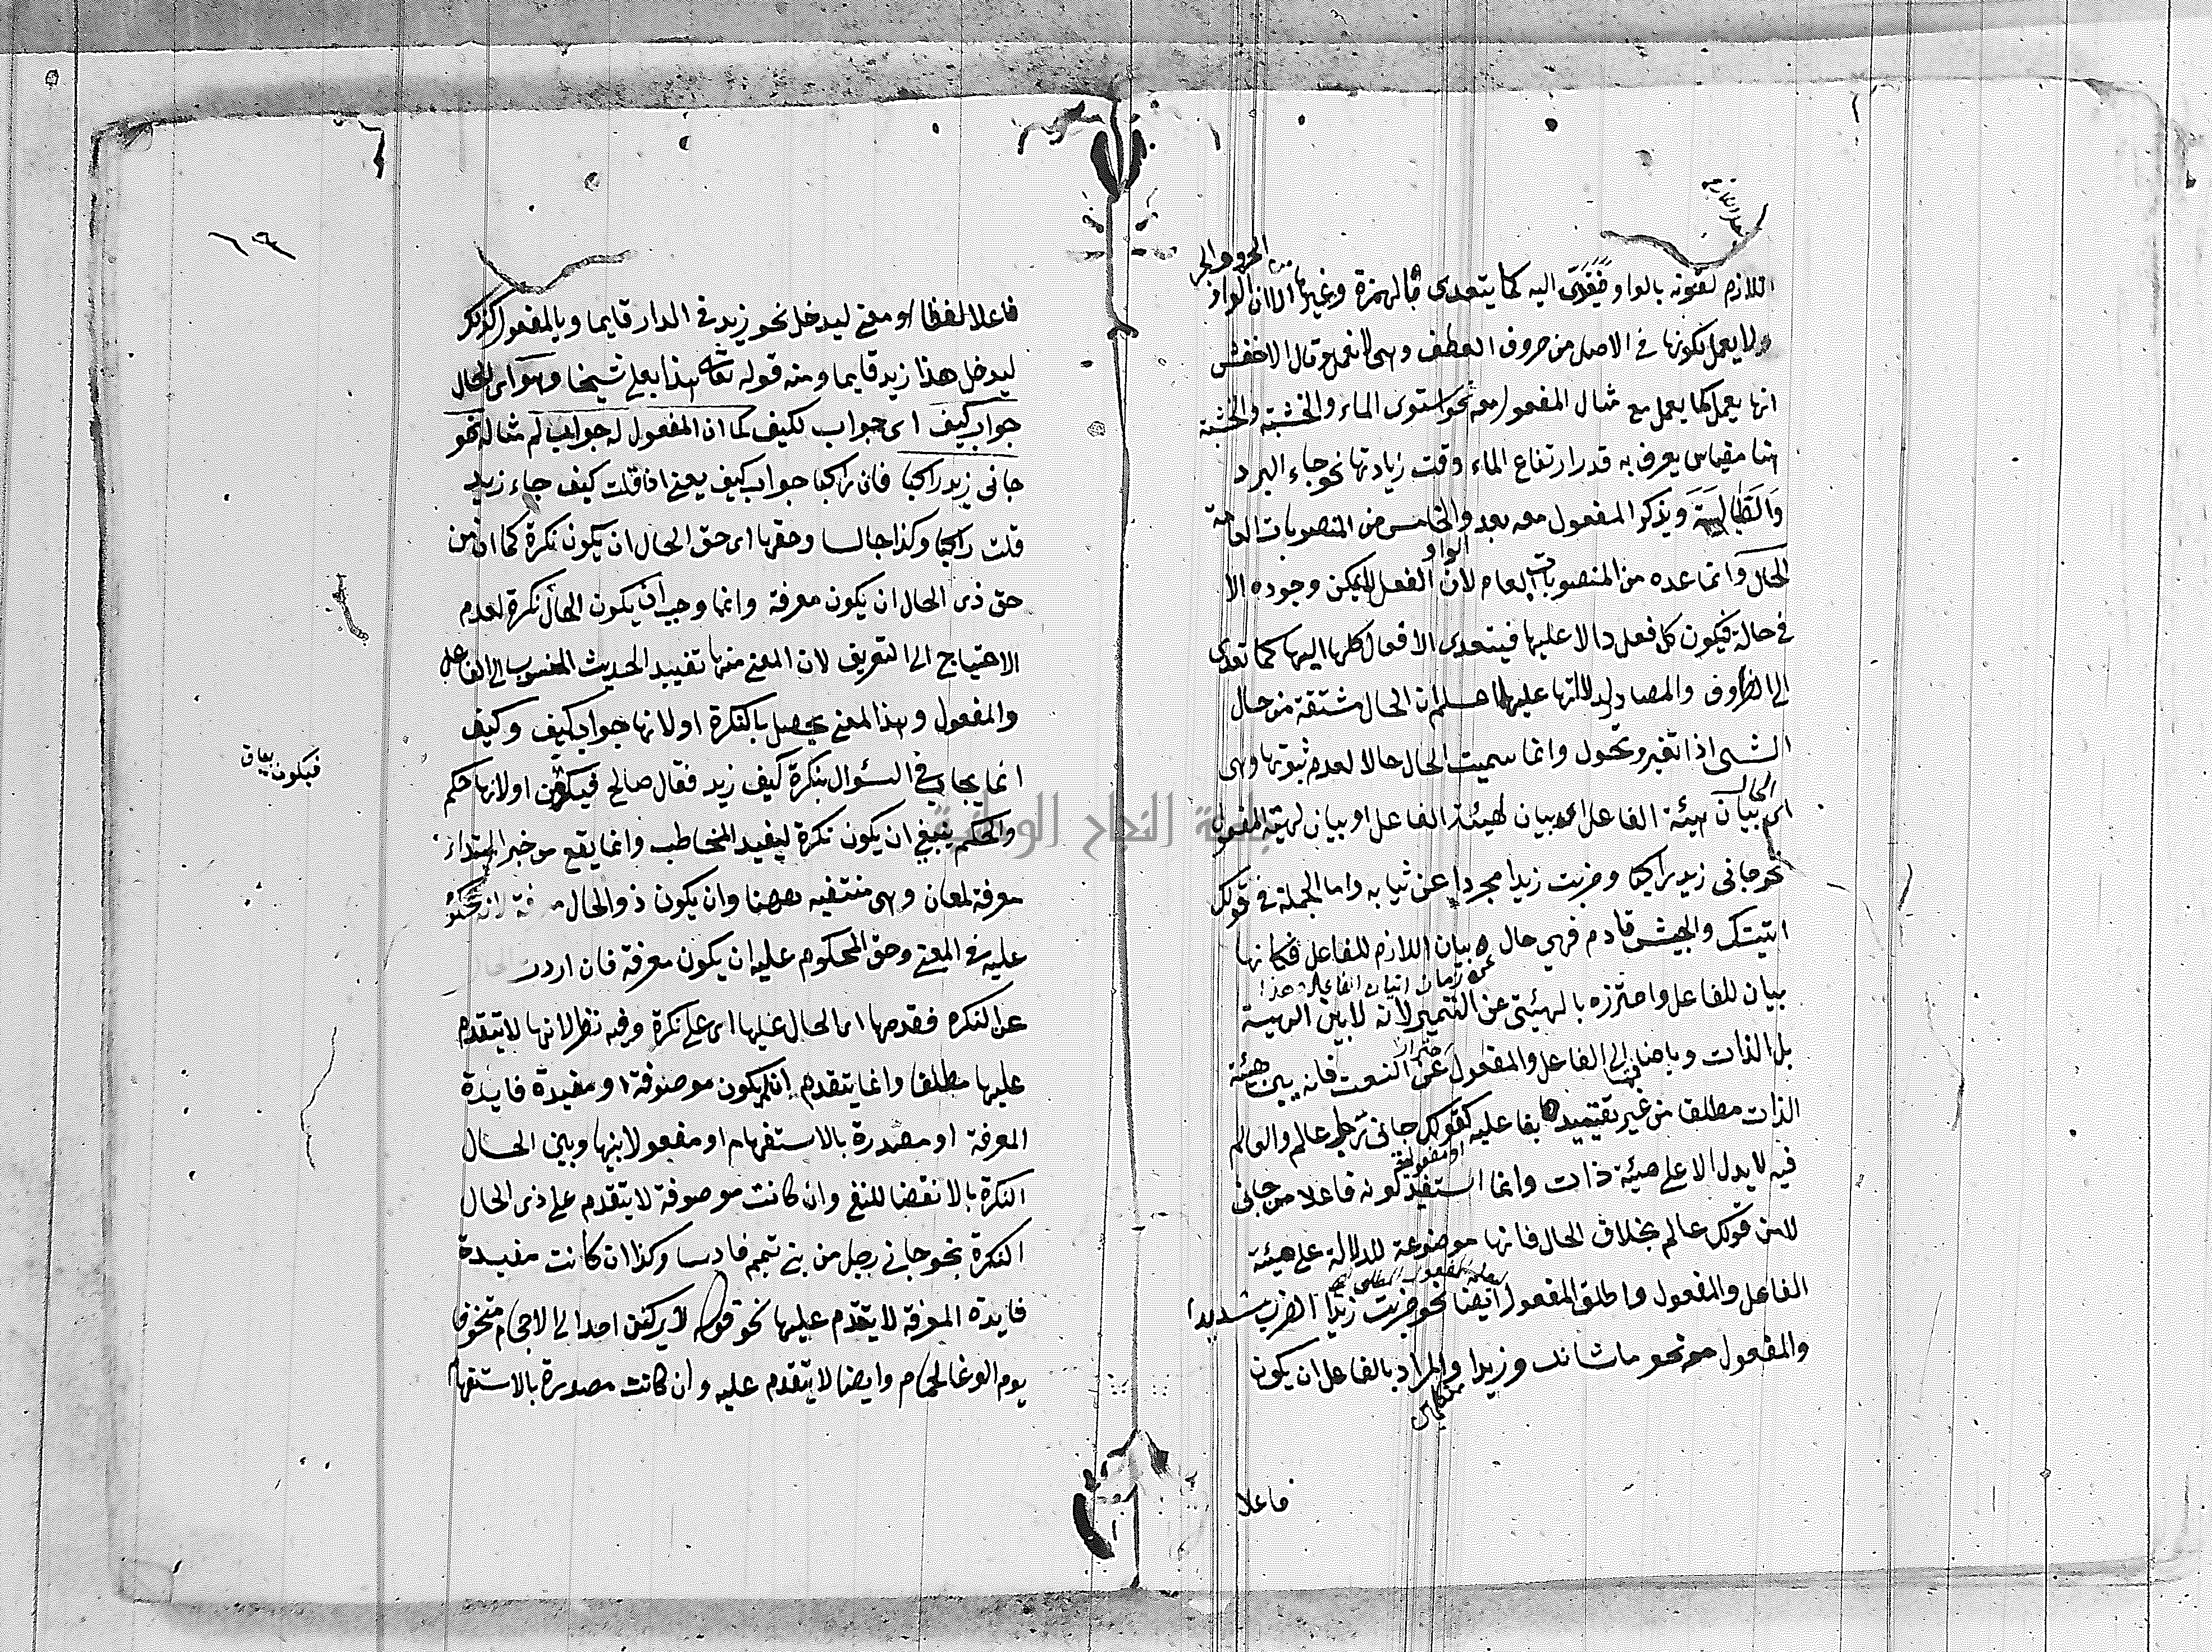 اللازم لقوته بالواو فيتعدى اليه كما يتعدى بالهمزة وغيرها من الحروف الجر الا ان الواو
ولا يعمل لكونها في الاصل من حروف العطف وهى لا تعمل وقال الاخفش
انها يعمل كما يعمل مع مثال المفعول معه نحو استوى الماء والخشبة والخشبة
هنا مقياس يعرف به قدر ارتفاع الماء وقت زيادتها نحو جاء البرد
والطيالسة ويذكر المفعول معه بعد الواو والخامس من المنصوبات العامة
الحال وانما عده من المنصوبات العام لان الفعل لا يمكن وجوده الا
في حالة فيكون كل فعل دالا عليها فيتعدى الافعال كلها اليها كما تعدى
الى الظروف والمصادر لدلالتها عليها اعلم ان الحال مشتقة من حال
الشئ اذا تغير وتحول وانما سميت الحال حالا لعدم ثبوتها وهى
اى الحال بيان هيئة الفاعل اى بيان لهيئة الفاعل او بيان لهيئة المفعول
نحو جانى زيد راكبا وضربت زيدا مجردا عن ثيابه واما الجملة في قولك
اتيتك والجيش قادم فهى حال بيان اللازم للفاعل فكانها
عن زمان اتيان الفاعل وهذا
بيان للفاعل واحترزه بالهيئتى عن التمييز لانه لا يبين الهيئة
بل الذات وباضافتها الى الفاعل والمفعول احترازا عن النعت فانه يبين هيئة
الذات مطلقا من غير تقييد بفاعليه او مفعولية كقولك جانى رجل عالم والعالم
فيه لا يدل الا على هيئة ذات وانما استفيد كونه فاعلا من جانى
لا من قولك عالم بخلاف الحال فانها موضوعة للدلالة على هيئة
الفاعل والمفعول واطلق المفعول ايضا نحو ضربت زيدا الضرب شديدا
والمفعول معه نحو ما شانك وزيدا والمراد بالفاعل ان يكون
فاعلا
١٩
فاعلا لفظا او معنى ليدخل نحو زيد في الدار قايما وبالمفعول كذلك
ليدخل هذا زيد قايما ومنه قوله تعالى هذا بعلى شيخا وهو اى الحال
جواب كيف اى جواب لكيف كما ان المفعول له جواب لم مثاله نحو
جانى زيد راكبا فان راكبا جواب كيف يعنى اذا قلت كيف جاء زيد
قلت راكبا وكذا جالسا وحقها اى حق الحال ان يكون نكرة كما ان من
حق ذى الحال ان يكون معرفة وانما وجب ان يكون الحال نكرة لعدم
الاحتياج الى التعريف لان المعنى منها تقييد الحديث المنسوب الى الفاعل
والمفعول وهذا المعنى يحصل بالنكرة او لانها جواب كيف وكيف
انما يجاب في السؤال بنكرة كيف زيد فقال صالح فيكون او لانها حكم
والحكم ينبغى ان يكون نكرة ليفيد المخاطب وانما يقع خبر المبتداء
معرفة لمعان وهى منتفيه ههنا وان يكون ذو الحال معرفة لانه محكوم
عليه في المعنى وحق المحكوم عليه ان يكون معرفة فان اردت الحال
عن النكرة فقدمها اى الحال عليها اى على نكرة وفيه نظر لانها لا يتقدم
عليها مطلقا وانما يتقدم ان لم يكون موصوفة او مفيدة فايدة
المعرفة او مصدرة بالاستفهام او مفعولا بينها وبين الحال
النكرة بالا نقضا للنفى وان كانت موصوفة لا يتقدم على ذى الحال
النكرة نحو جانى رجل من بنى تميم فارسا وكذا ان كانت مفيدة
فايدة المعرفة لا يتقدم عليها نحو قوله لا يركنن احد الى الاحجام متخوفا
يوم الوغا لحمام وايضا لا يتقدم عليه وان كانت مصدرة بالاستفهام
جامعة النجاح الوطنية